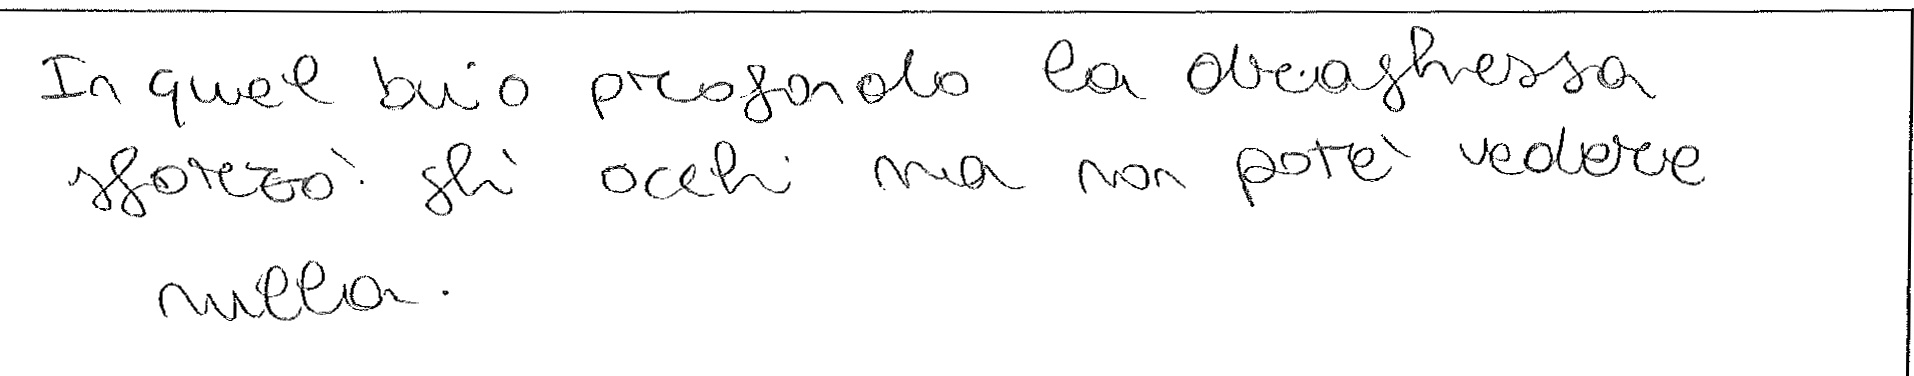 In quel buio profondo la draghessa
sforzò gli occhi ma non potè vedere
nulla.